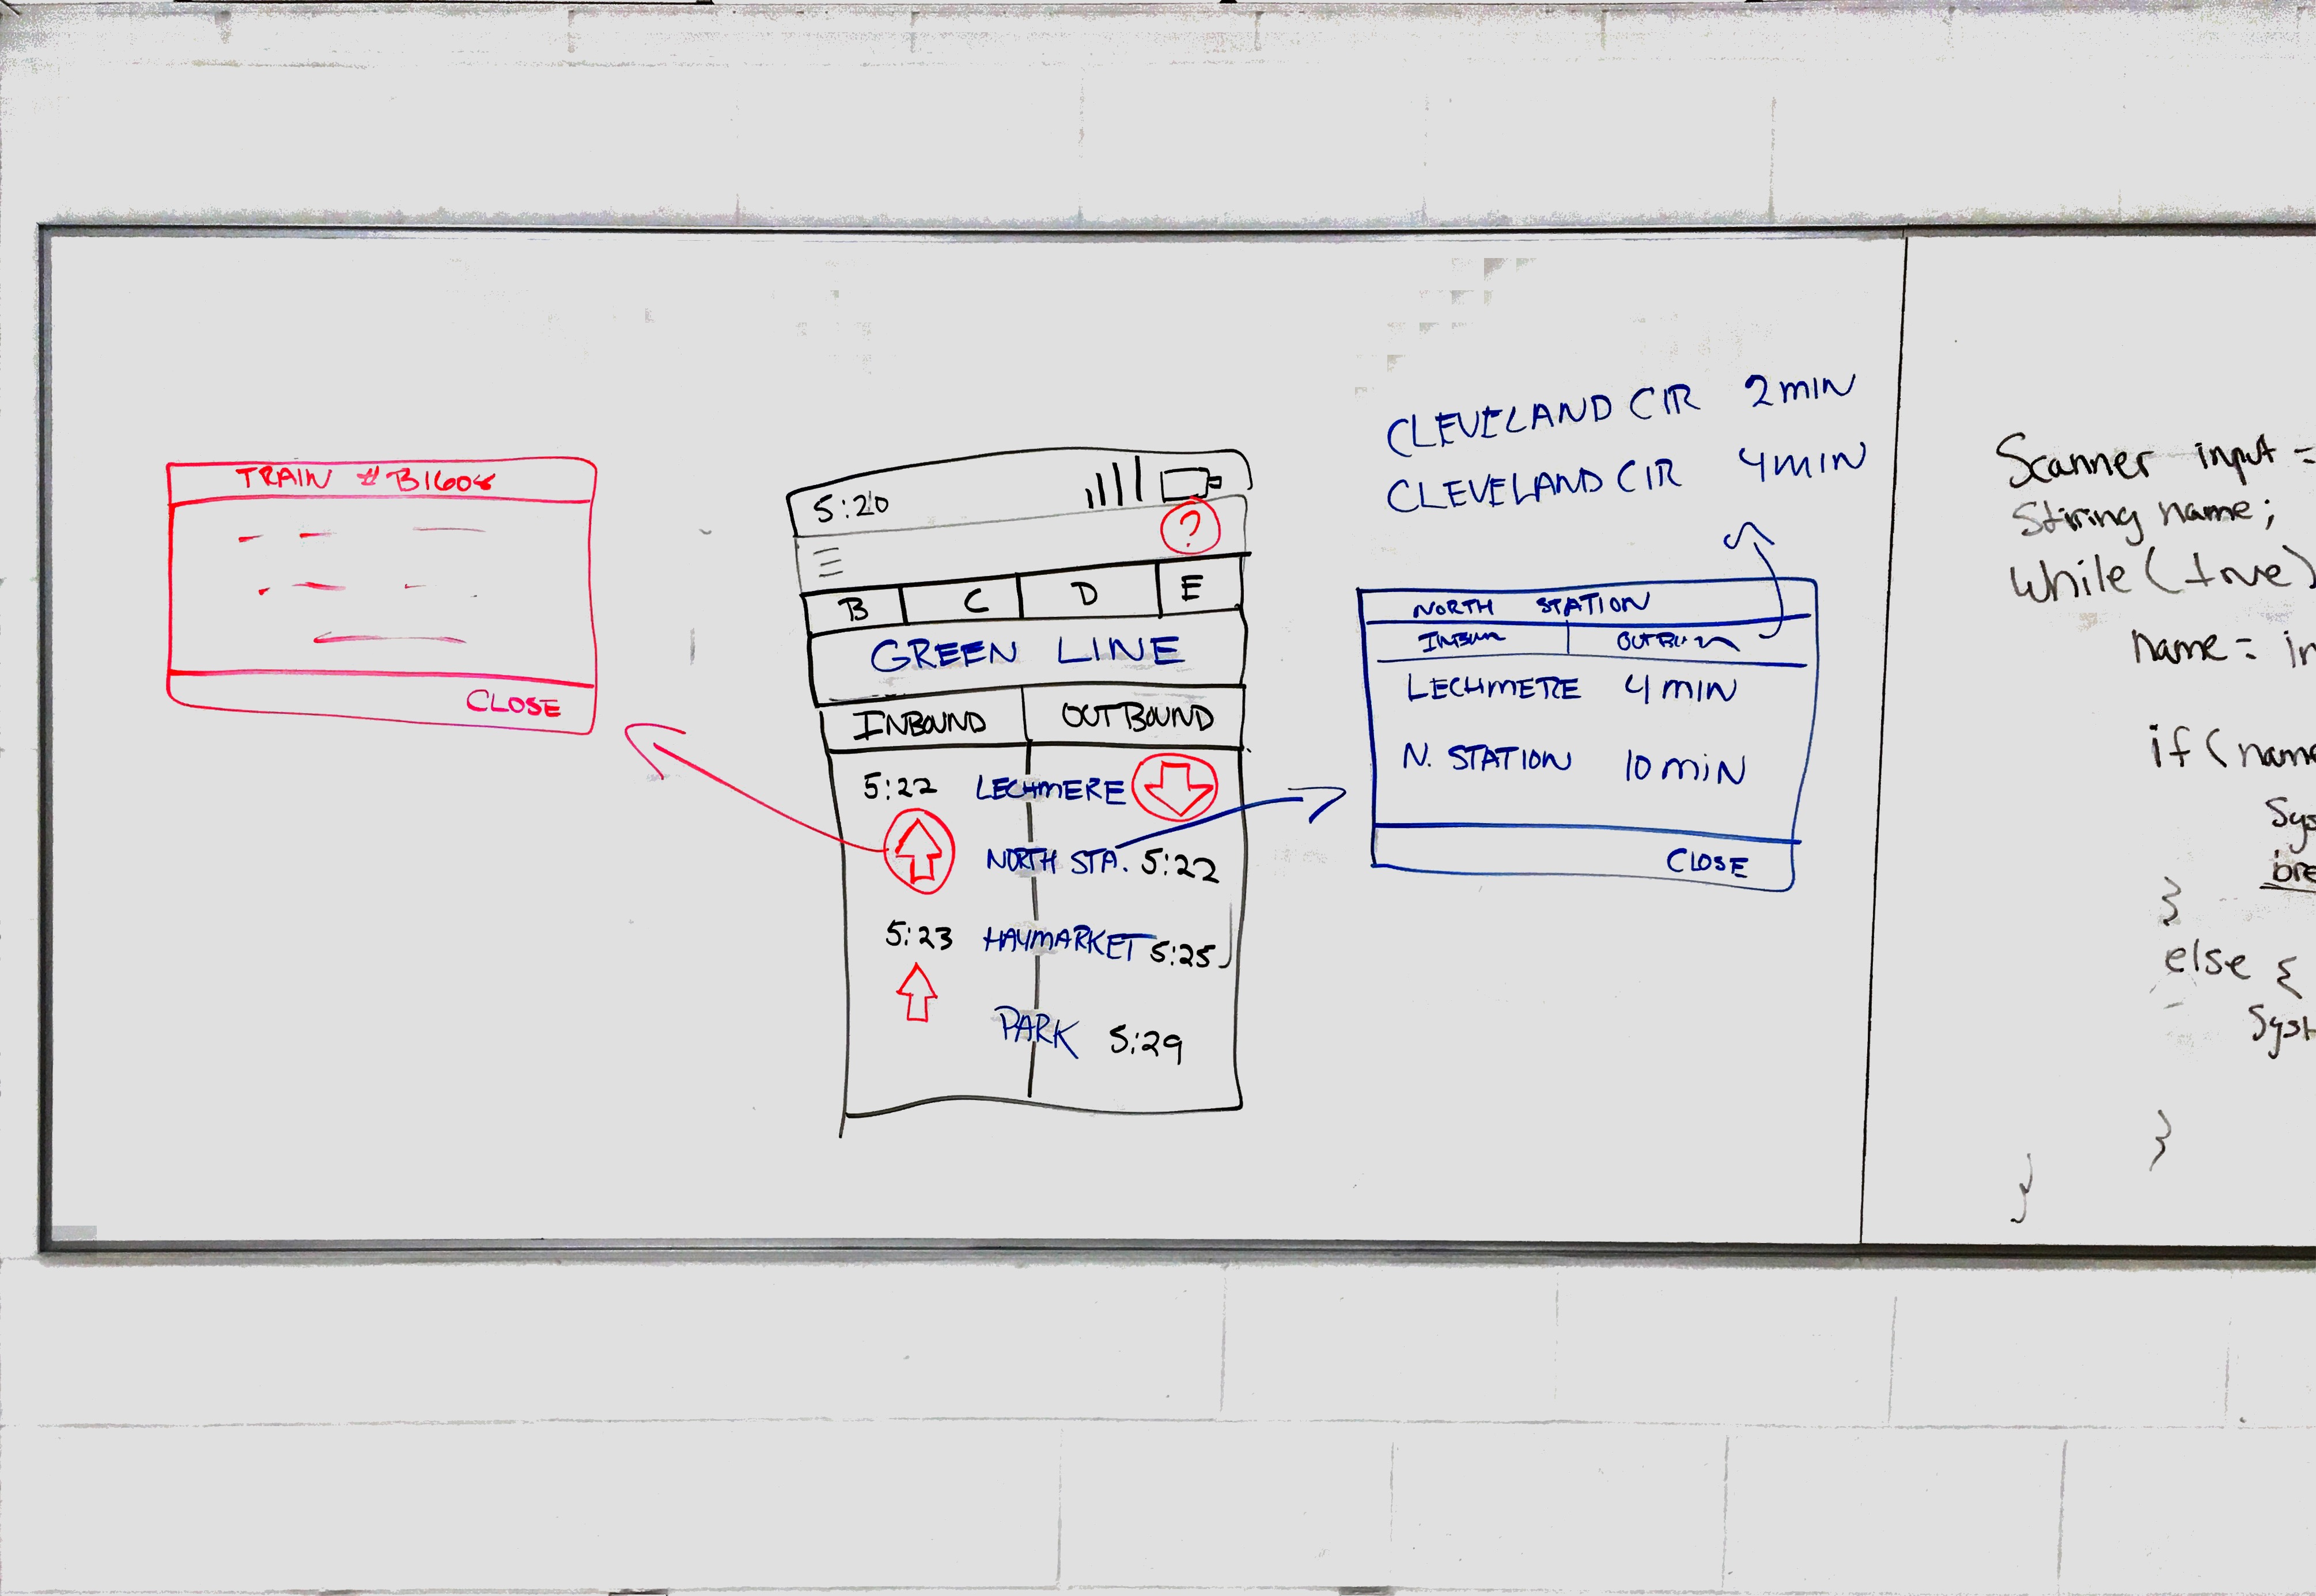 TRAIN #B1608
CLOSE
5:20
?
B C D E
GREEN LINE
INBOUND OUTBOUND
5:22 LECHMERE
NORTH STA. 5:22
5:23 HAYMARKET 5:25
PARK 5:29
CLEVELAND CIR 2 MIN
CLEVELAND CIR 4 MIN
NORTH STATION
LECHMERE 4 MIN
N. STATION 10 MIN
CLOSE
Scanner input =
String name;
while (true)
name = in
if (name
Sys
bre
}
else {
Syst
}
}